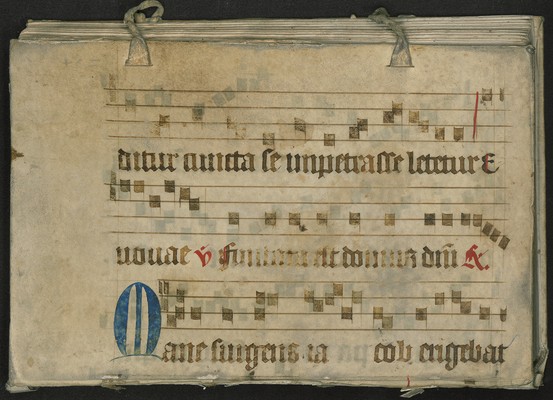 ditur cuncta se impetrasse letetur E
uouae v̄ Fundata est domus dm̄ A.
Mane surgens ia cob erigebat